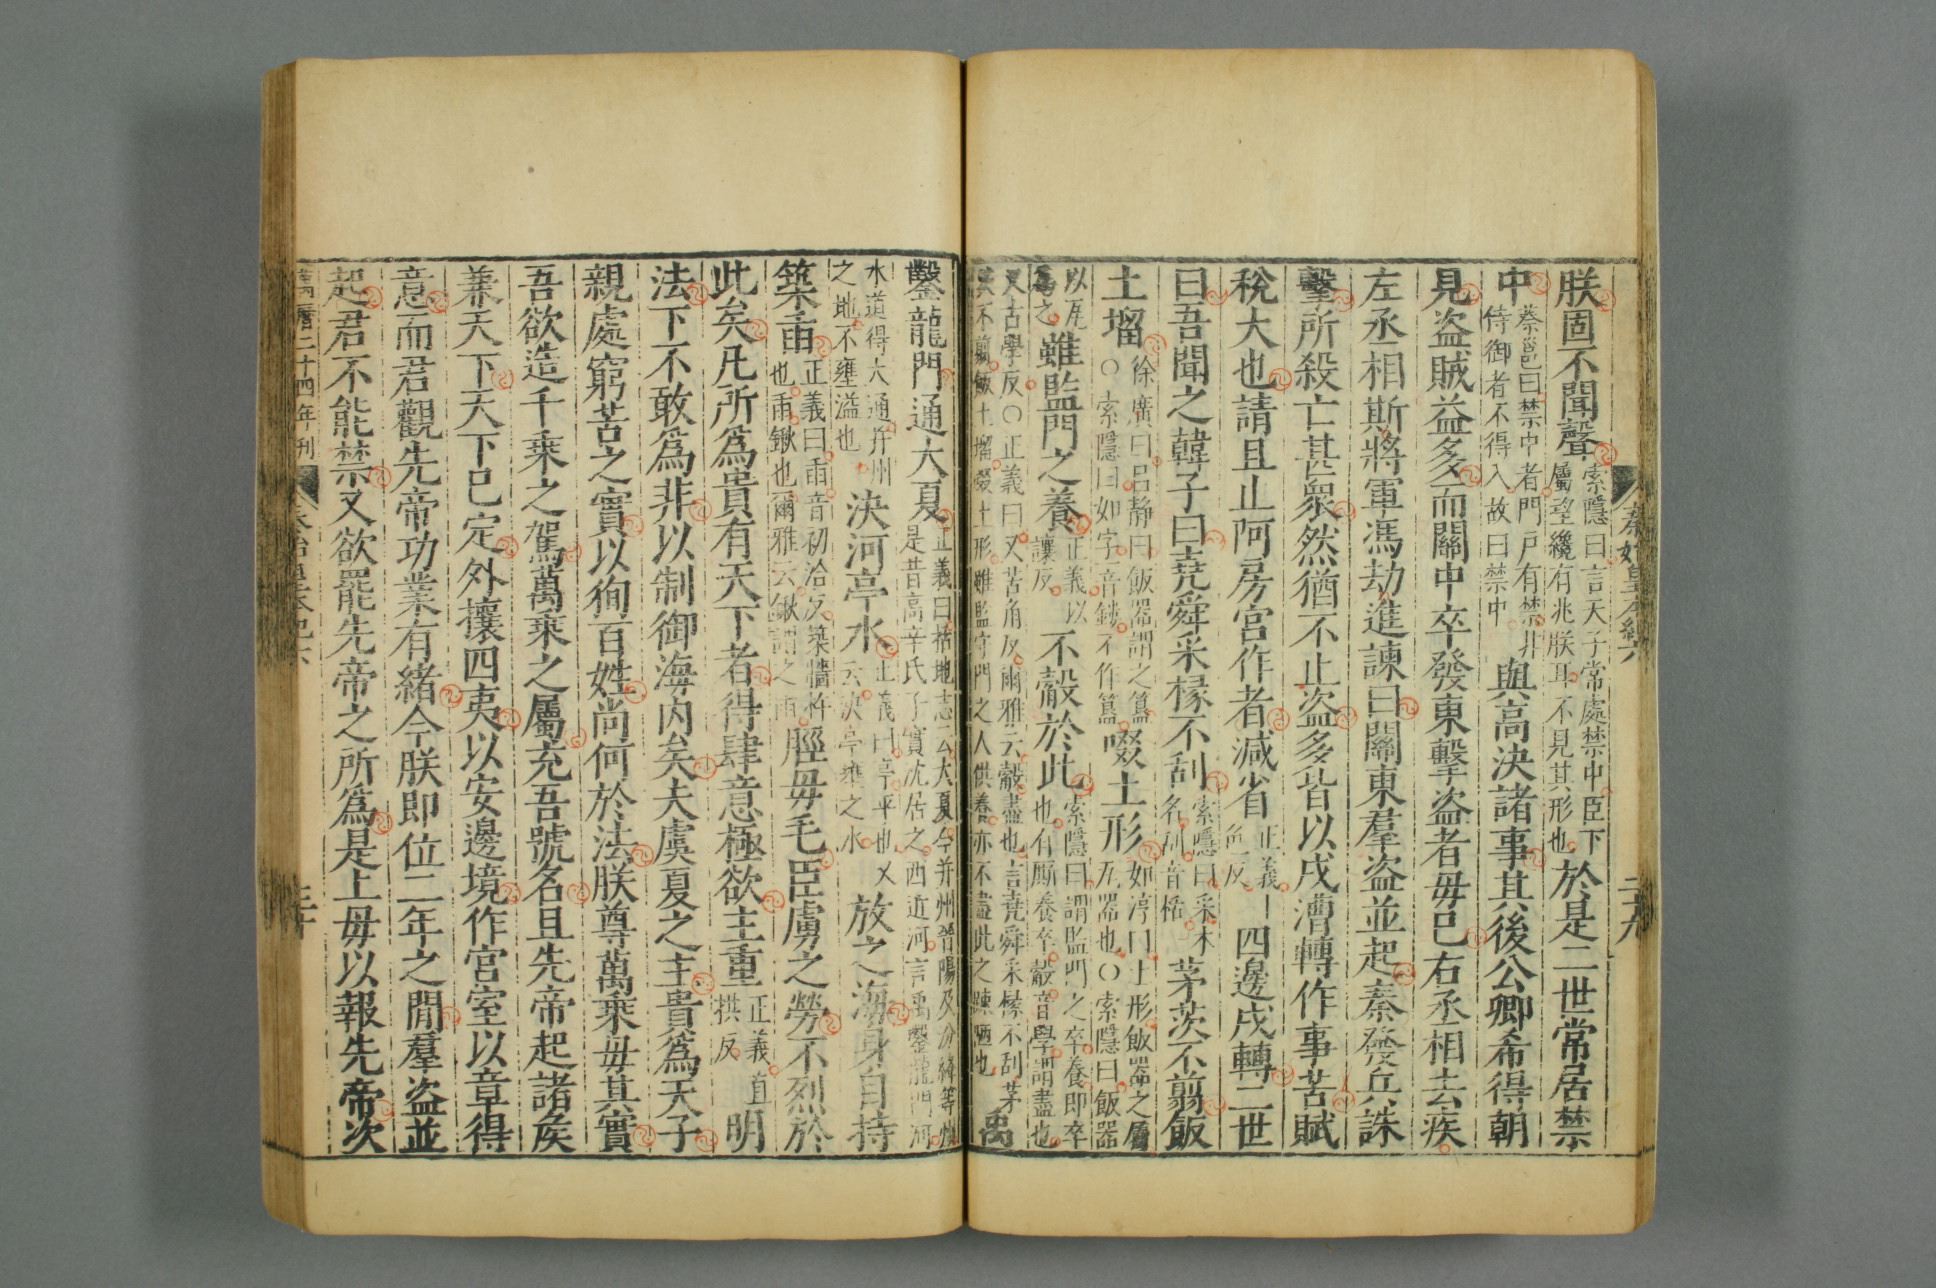 秦始皇本紀六 二十九
朕固不聞聲索隱曰言天子常處禁中臣下屬望纔有兆朕耳不見其形也於是二世常居禁
中蔡邕曰禁中者門戶有禁非侍御者不得入故曰禁中與高決諸事其後公卿希得朝
見盜賊益多而關中卒發東擊盜者毋已右丞相去疾
左丞相斯將軍馮劫進諫曰關東羣盜並起秦發兵誅
擊所殺亡甚衆然猶不止盜多皆以戍漕轉作事苦賦
稅大也請且止阿房宮作者減省正義色反四邊戍轉二世
曰吾聞之韓子曰堯舜采椽不刮索隱曰采木名刮音栝茅茨不翦飯
土塯徐廣曰呂靜曰飯器謂之簋○索隱曰如字音鏤不作簋啜土形如淳曰土形飯器之屬瓦器也○索隱曰飯器
以瓦爲之雖監門之養正義以讓反不觳於此索隱曰謂監門之卒養即卒也有厮養卒觳音學謂盡也
又古學反○正義曰又苦角反爾雅云觳盡也言堯舜采椽不刮茅茨不翦飯土塯啜土形雖監守門之人供養亦不盡此之疎陋也禹
鑿龍門通大夏正義曰括地志云大夏今并州晉陽及汾絳等州是昔高辛氏子實沈居之西近河言禹鑿龍門河
水道得大通并州之地不壅溢也決河亭水正義曰亭平也又云決亭壅之水放之海身自持
築臿正義曰臿音初洽反築牆杵也臿鍬也爾雅云鍬謂之臿脛毋毛臣虜之勞不烈於
此矣凡所爲貴有天下者得肆意極欲主重正義直拱反明
法下不敢爲非以制御海內矣夫虞夏之主貴爲天子
親處窮苦之實以徇百姓尚何於法朕尊萬乘毋其實
吾欲造千乘之駕萬乘之屬充吾號名且先帝起諸矦
兼天下天下已定外攘四夷以安邊境作宮室以章得
意而君觀先帝功業有緒今朕即位二年之閒羣盜並
起君不能禁又欲罷先帝之所爲是上毋以報先帝次
萬曆二十四年刊 秦始皇本紀六 三十